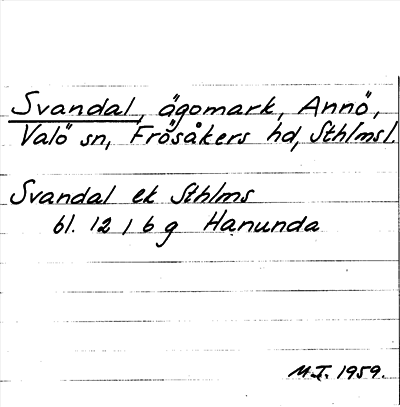 Svandal, ägomark, Annö,
Valö sn, Frösåkers hd, Sthlmsl.
Svandal ek Sthlms
bl. 12 I 6 g Hanunda
M.J. 1959.